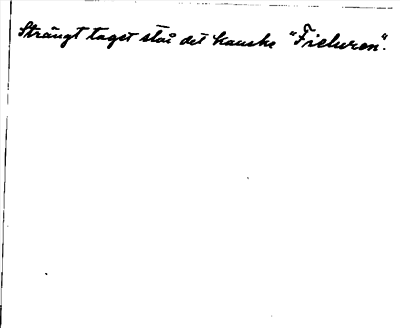 Strängt taget står det kanske "Fieluren".